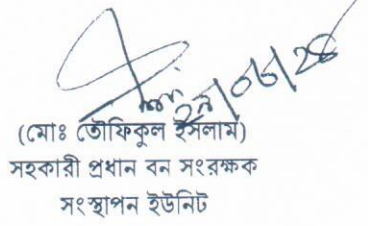 (মোঃ তৌফিকুল ইসলাম)
সহকারী প্রধান বন সংরক্ষক
সংস্থাপন ইউনিট